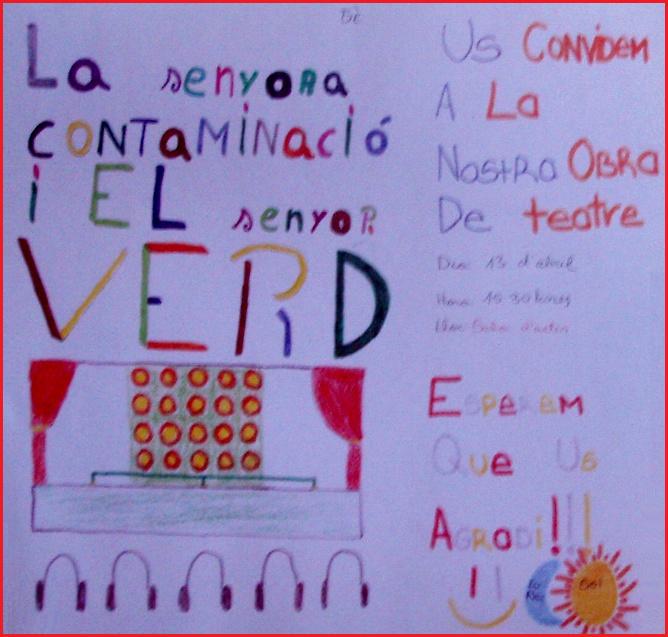 La senyora
CONTAMINACIÓ
i EL senyor
VERD
Us CONVIDEM
A La
NOSTRA OBRA
De teatre
Dia: 13 d'abril
Hora: 15:30 hores
Lloc: Sala d'actes
ESPEREM
Que Us
AGRADI!!!
Sol